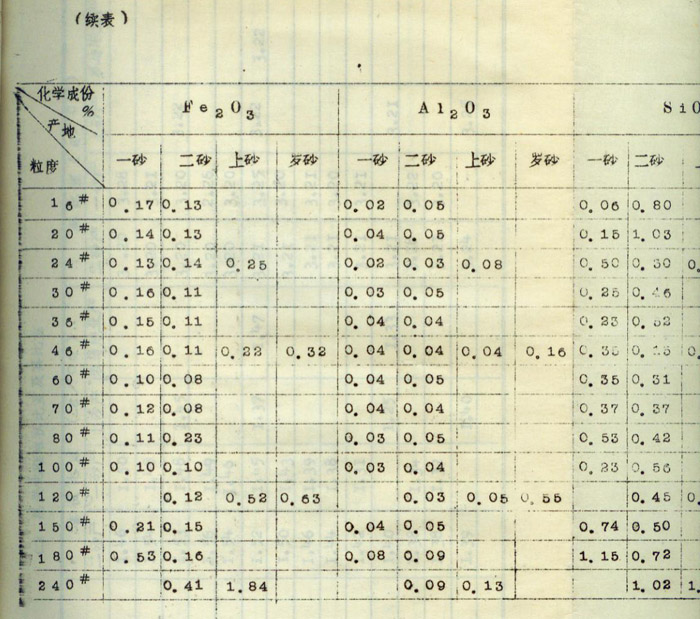 （续表）
化学成份
%
产地
粒度
Fe₂O₃ Al₂O₃ SiO
一砂 二砂 上砂 岁砂 一砂 二砂 上砂 岁砂 一砂 二砂
16# 0.17 0.13 0.02 0.05 0.06 0.80
20# 0.14 0.13 0.04 0.05 0.15 1.03
24# 0.13 0.14 0.25 0.02 0.03 0.08 0.50 0.30 0.
30# 0.16 0.11 0.03 0.05 0.25
36# 0.15 0.11 0.04 0.04 0.23
46# 0.16 0.11 0.22 0.32 0.04 0.04 0.04 0.16 0.
60# 0.10 0.08 0.04 0.05 0.35 0.31
70# 0.12 0.08 0.04 0.04 0.37 0.37
80# 0.11 0.23 0.03 0.05 0.53 0.42
100# 0.10 0.10 0.03 0.04 0.23 0.56
120# 0.12 0.52 0.63 0.03 0.05 0.55 0.45 0.
150# 0.21 0.15 0.04 0.05 0.74 0.50
180# 0.53 0.16 0.08 0.09 1.15 0.72
240# 0.41 1.84 0.09 0.13 1.02 1.